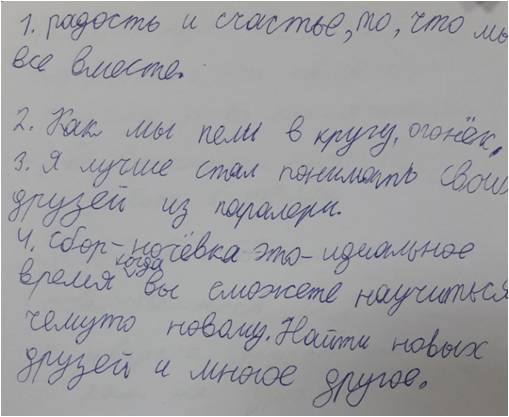 1. радость и счастье, то, что мы
все вместе.
2. Как мы пели в кругу, огонёк,
3. Я лучше стал понимать свои
друзей из паралели.
4. Сбор-ночёвка это-идеальное
когда
время вы сможете научиться
чемуто новому. Найти новых
друзей и многое другое.